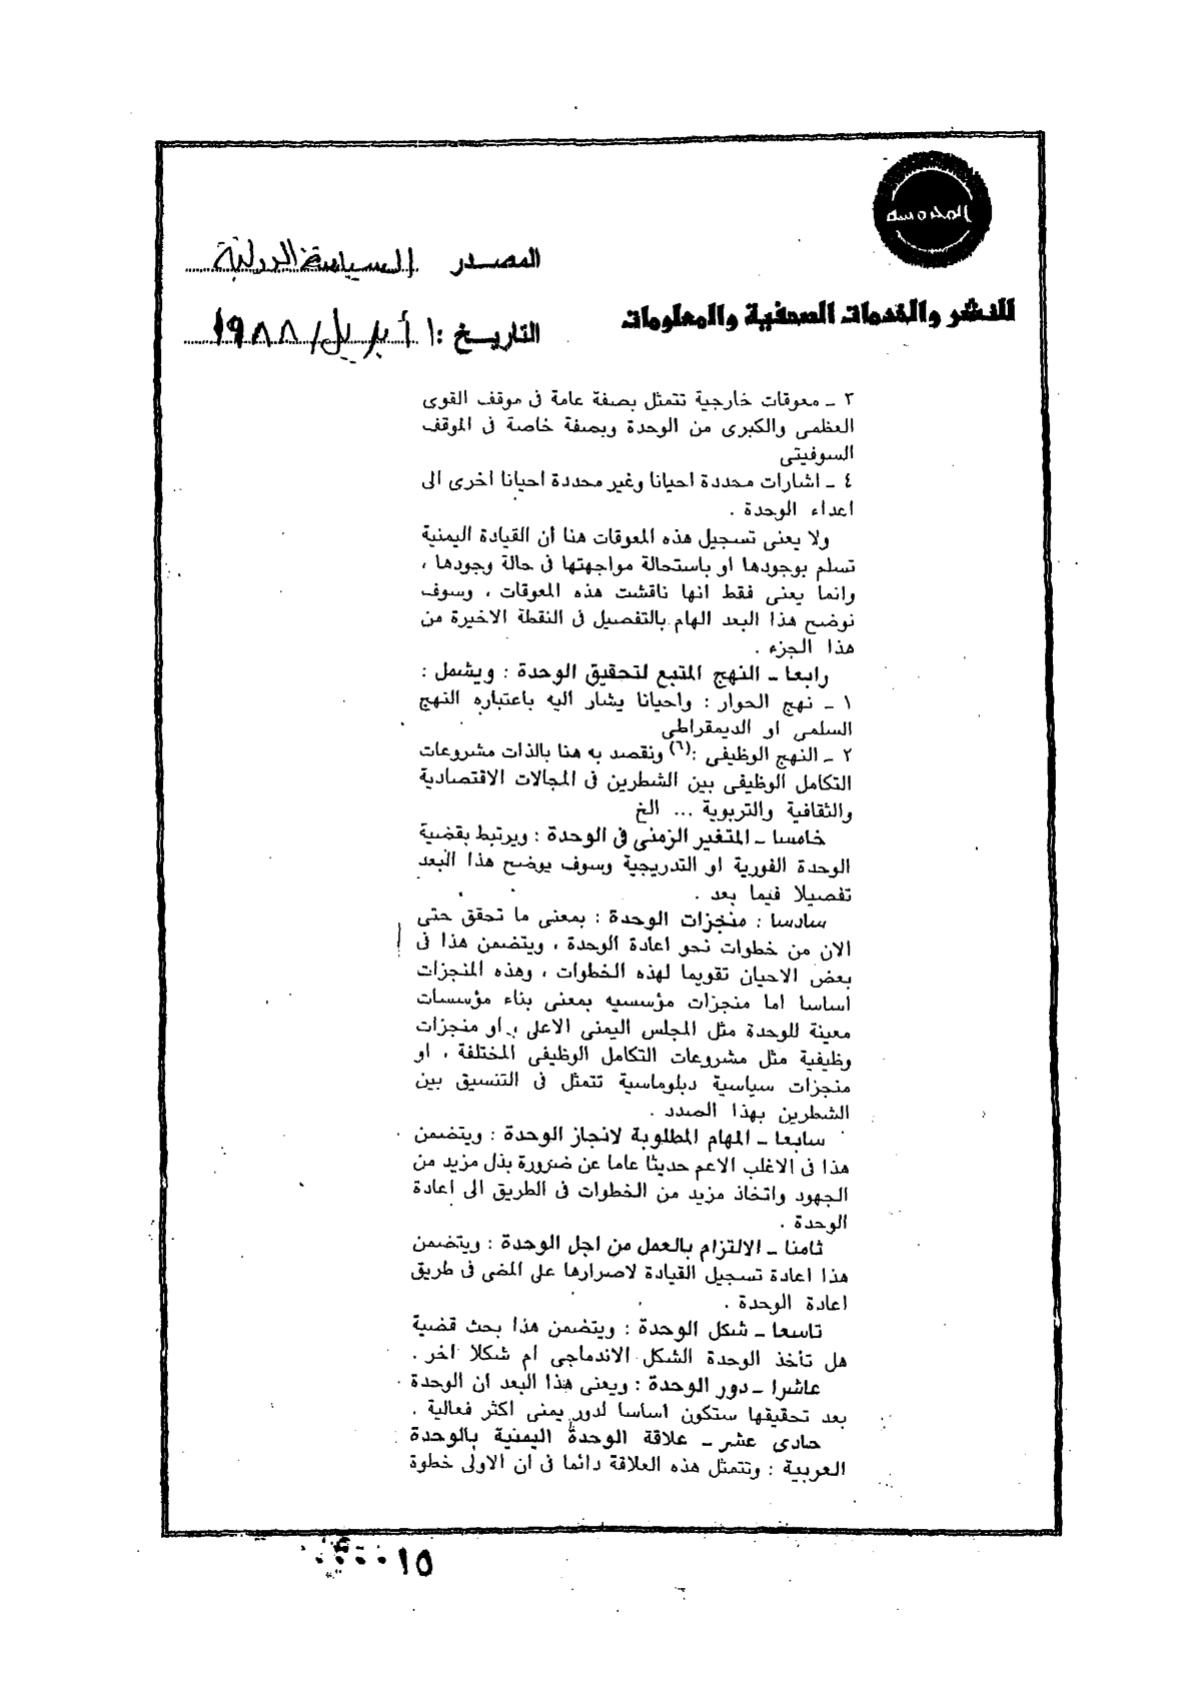 المحروسة
للنشر والخدمات الصحفية والمعلومات
المصدر السياسة الدولية
التاريخ : ١ أبريل / ١٩٨٨
٣ ـ معوقات خارجية تتمثل بصفة عامة فى موقف القوى
العظمى والكبرى من الوحدة وبصفة خاصة فى الموقف
السوفيتى
٤ ـ اشارات محددة احيانا وغير محددة احيانا اخرى الى
اعداء الوحدة .
ولا يعنى تسجيل هذه المعوقات هنا أن القيادة اليمنية
تسلم بوجودها او باستحالة مواجهتها فى حالة وجودها ،
وانما يعنى فقط انها ناقشت هذه المعوقات ، وسوف
نوضح هذا البعد الهام بالتفصيل فى النقطة الاخيرة من
هذا الجزء .
رابعا ـ النهج المتبع لتحقيق الوحدة : ويشمل :
١ ـ نهج الحوار : واحيانا يشار اليه باعتباره النهج
السلمى او الديمقراطى
٢ ـ النهج الوظيفى :(٦) ونقصد به هنا بالذات مشروعات
التكامل الوظيفى بين الشطرين فى المجالات الاقتصادية
والثقافية والتربوية ... الخ
خامسا ـ المتغير الزمنى فى الوحدة : ويرتبط بقضية
الوحدة الفورية او التدريجية وسوف يوضح هذا البعد
تفصيلا فيما بعد .
سادسا : منجزات الوحدة : بمعنى ما تحقق حتى
الان من خطوات نحو اعادة الوحدة ، ويتضمن هذا فى
بعض الاحيان تقويما لهذه الخطوات ، وهذه المنجزات
اساسا اما منجزات مؤسسيه بمعنى بناء مؤسسات
معينة للوحدة مثل المجلس اليمنى الاعلى ، او منجزات
وظيفية مثل مشروعات التكامل الوظيفى المختلفة ، او
منجزات سياسية دبلوماسية تتمثل فى التنسيق بين
الشطرين بهذا الصدد .
سابعا ـ المهام المطلوبة لانجاز الوحدة : ويتضمن
هذا فى الاغلب الاعم حديثا عاما عن ضرورة بذل مزيد من
الجهود واتخاذ مزيد من الخطوات فى الطريق الى اعادة
الوحدة .
ثامنا ـ الالتزام بالعمل من اجل الوحدة : ويتضمن
هذا اعادة تسجيل القيادة لاصرارها على المضى فى طريق
اعادة الوحدة .
تاسعا ـ شكل الوحدة : ويتضمن هذا بحث قضية
هل تأخذ الوحدة الشكل الاندماجى ام شكلا اخر .
عاشرا ـ دور الوحدة : ويعنى هذا البعد ان الوحدة
بعد تحقيقها ستكون اساسا لدور يمنى اكثر فعالية .
حادى عشر ـ علاقة الوحدة اليمنية بالوحدة
العربية : وتتمثل هذه العلاقة دائما فى ان الاولى خطوة
١٥